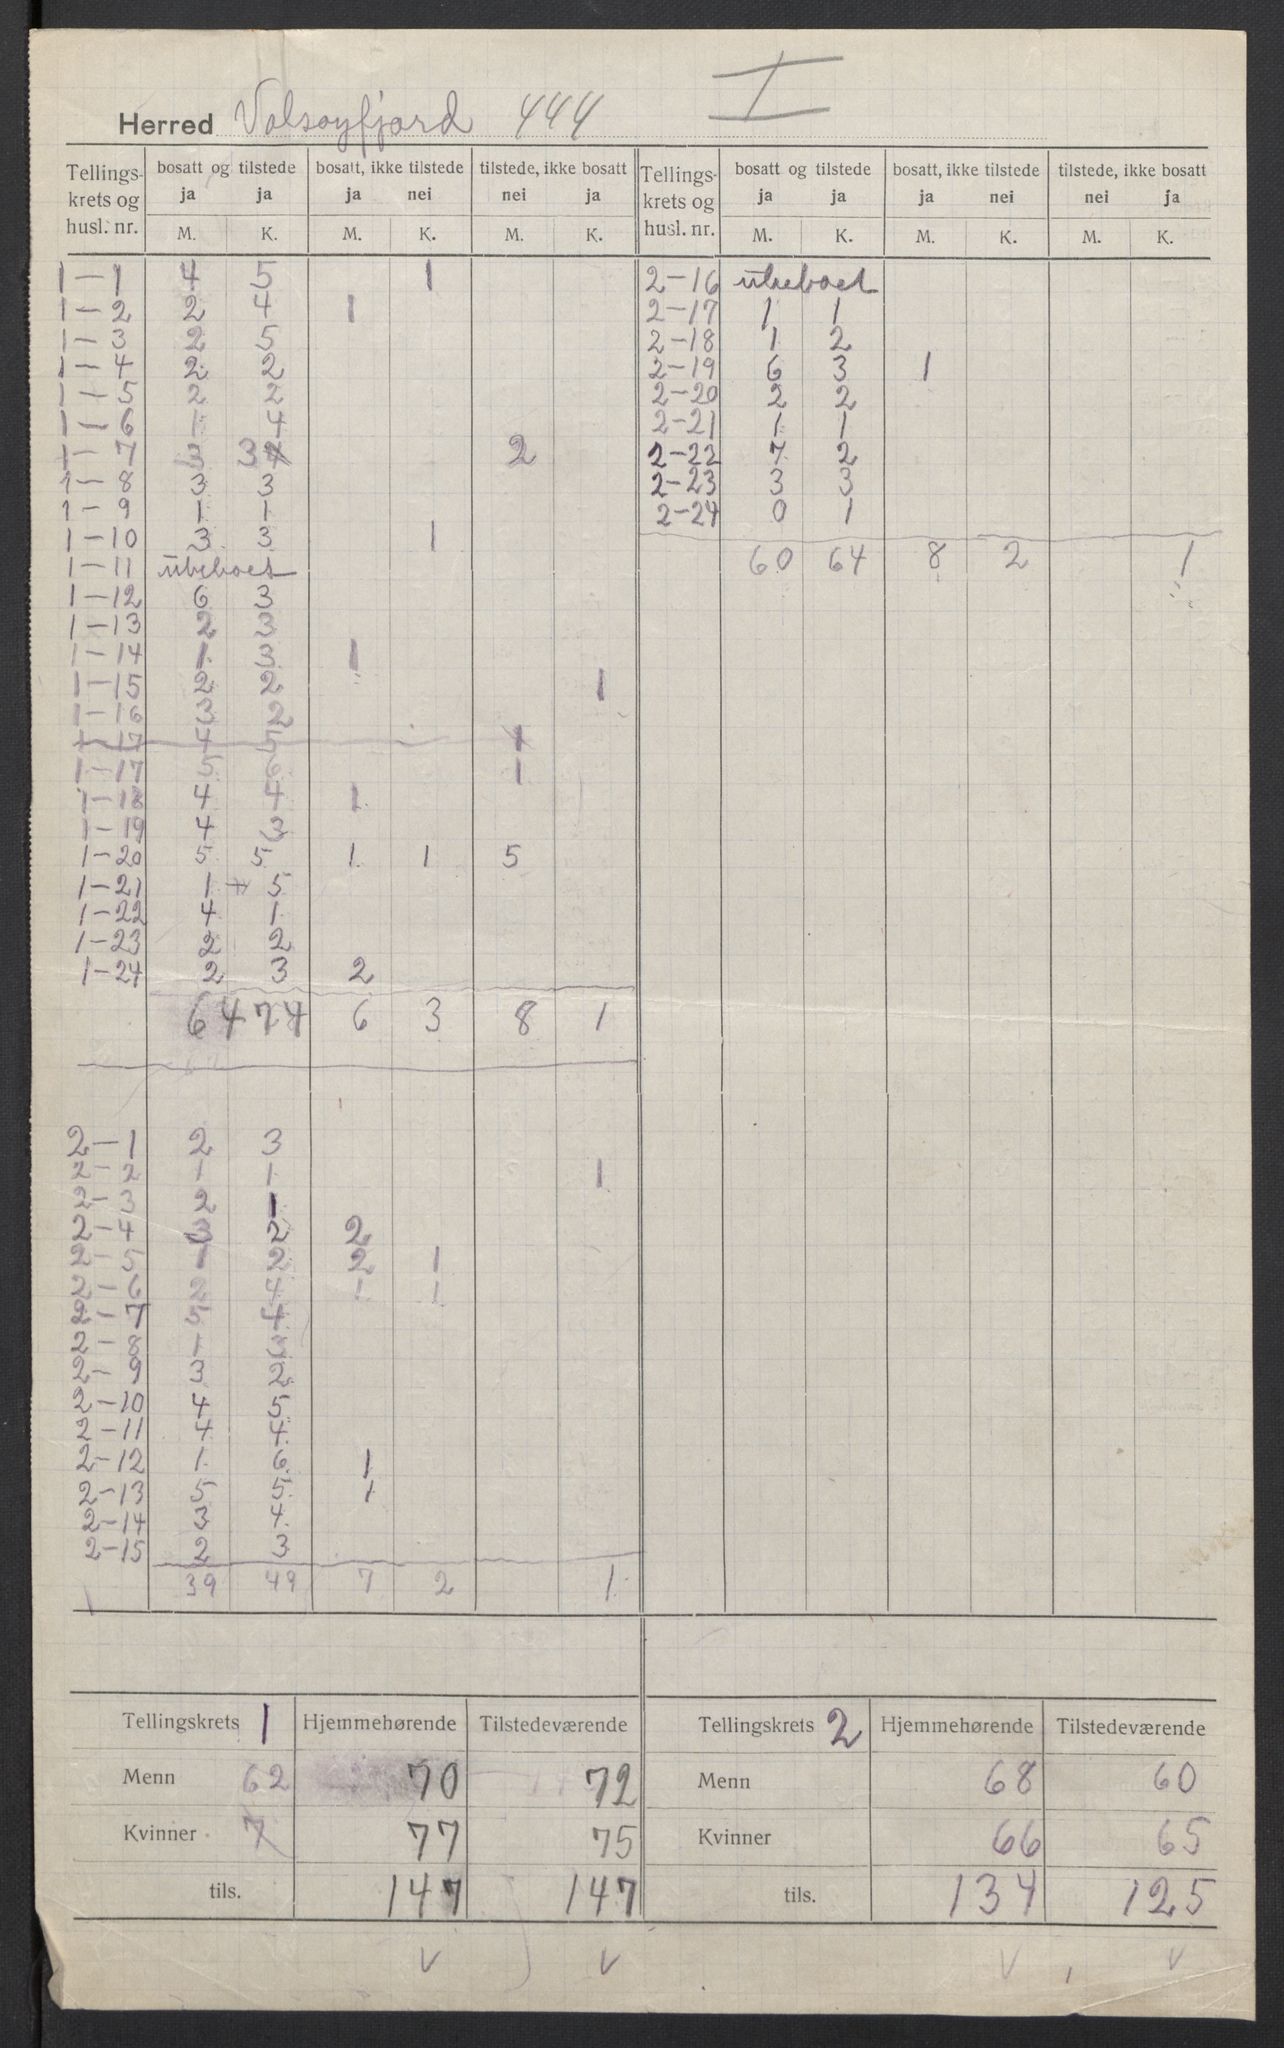 Herred Valsøyfjord 444 I
Tellings-krets og husl. nr. | bosatt og tilstede ja M. | ja K. | bosatt, ikke tilstede ja M. | nei K. | tilstede, ikke bosatt nei M. | ja K.
1-1 4 5 1
1-2 2 4 1
1-3 2 5
1-4 2 2
1-5 2 2
1-6 1 4
1-7 3 3 4 2
1-8 3 3
1-9 1 1
1-10 3 3 1
1-11 ubeboet
1-12 6 3
1-13 2 3
1-14 1 3 1
1-15 2 2 1
1-16 3 2
1-17 4 5 1
1-17 5 6 1
1-18 4 4 1
1-19 4 3
1-20 5 5 1 1 5
1-21 1 + 5
1-22 4 1
1-23 2 2
1-24 2 3 2
64 74 6 3 8 1
2-1 2 3
2-2 1 1 1
2-3 2 1
2-4 3 2 2
2-5 1 2 2 1
2-6 2 4 1 1
2-7 5 4
2-8 1 3
2-9 3 2
2-10 4 5
2-11 4 4
2-12 1 6 1
2-13 5 5 1
2-14 3 4
2-15 2 3
39 49 7 2 1
Tellings-krets og husl. nr. | bosatt og tilstede ja M. | ja K. | bosatt, ikke tilstede ja M. | nei K. | tilstede, ikke bosatt nei M. | ja K.
2-16 ubeboet
2-17 1 1
2-18 1 2
2-19 6 3 1
2-20 2 2
2-21 1 1
2-22 7 2
2-23 3 3
2-24 0 1
60 64 8 2 1
Tellingskrets 1 Hjemmehørende Tilstedeværende
Menn 62 70 72
Kvinner 7 77 75
tils. 147 147
v v
Tellingskrets 2 Hjemmehørende Tilstedeværende
Menn 68 60
Kvinner 66 65
tils. 134 125
v v